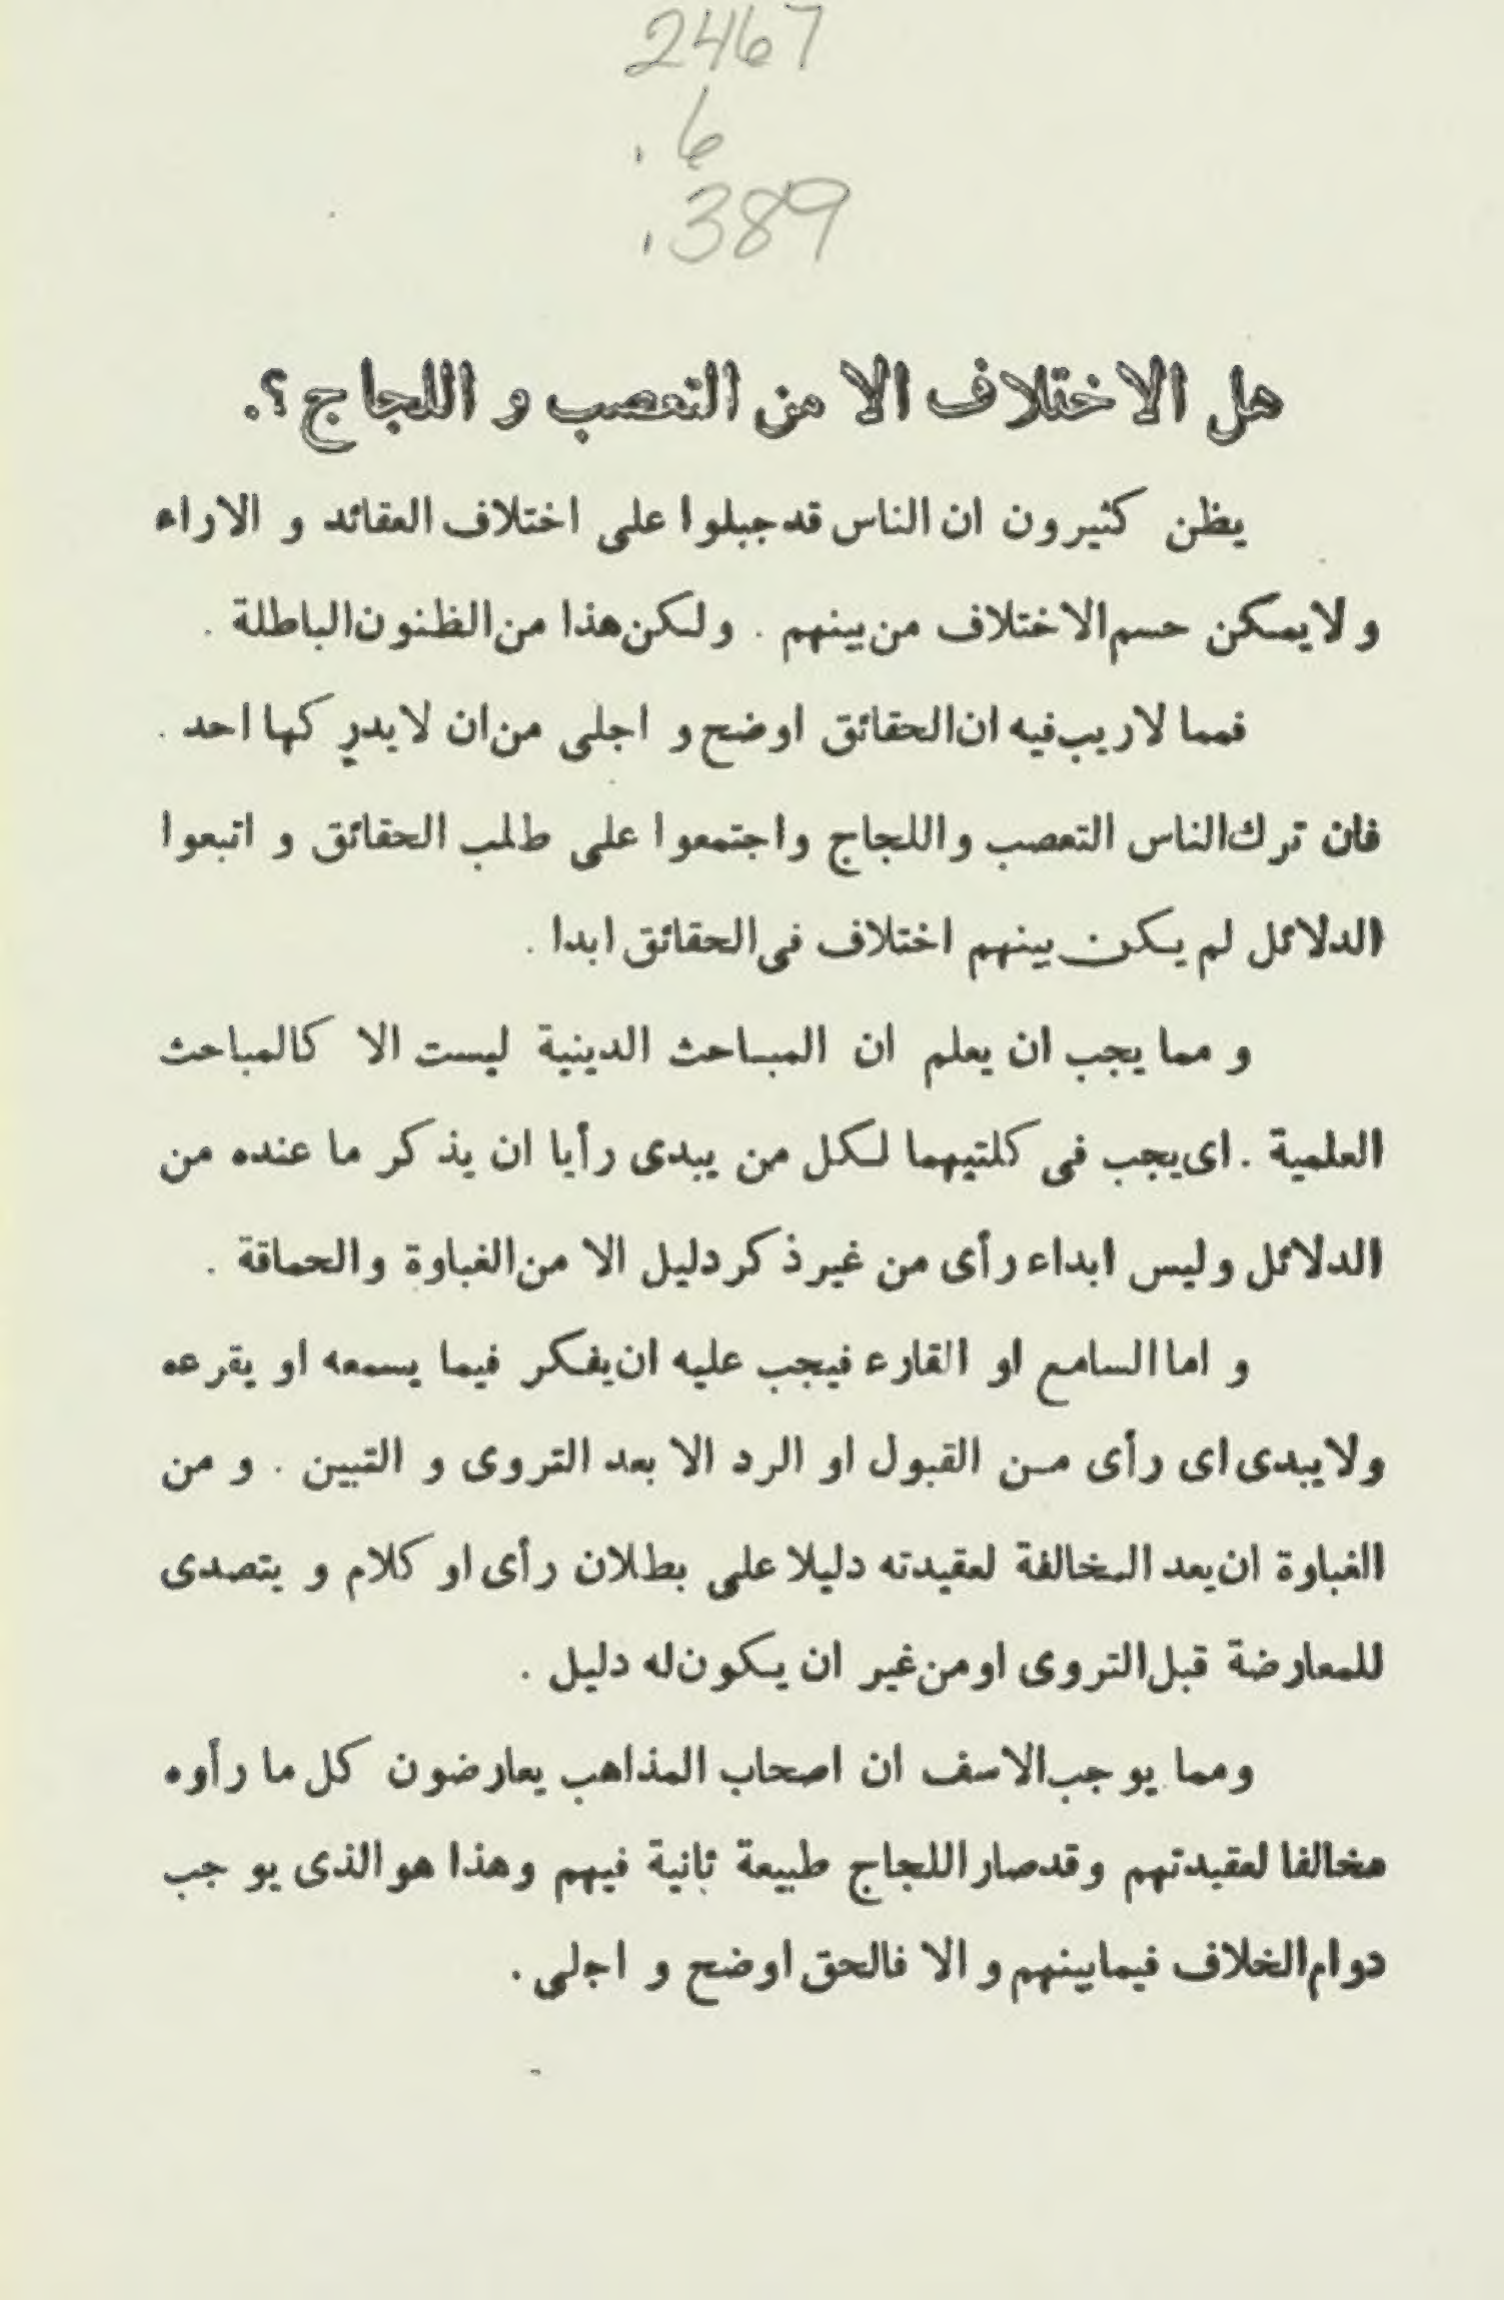 2467
.6
.389
هل الاختلاف الا من التعصب و اللجاج ؟.
يظن كثيرون ان الناس قد جبلوا على اختلاف العقائد و الاراء
و لا يمكن حسم الاختلاف من بينهم . ولكن هذا من الظنون الباطلة .
فمما لا ريب فيه ان الحقائق اوضح و اجلى من ان لا يدركها احد .
فان ترك الناس التعصب واللجاج واجتمعوا على طلب الحقائق و اتبعوا
الدلائل لم يكن بينهم اختلاف فى الحقائق ابدا .
و مما يجب ان يعلم ان المباحث الدينية ليست الا كالمباحث
العلمية . اى يجب فى كلتيهما لكل من يبدى رأيا ان يذكر ما عنده من
الدلائل وليس ابداء رأى من غير ذكر دليل الا من الغباوة والحماقة .
و اما السامع او القارء فيجب عليه ان يفكر فيما يسمعه او يقرءه
ولا يبدى اى رأى من القبول او الرد الا بعد التروى و التبين . و من
الغباوة ان يعد المخالفة لعقيدته دليلا على بطلان رأى او كلام و يتصدى
للمعارضة قبل التروى او من غير ان يكون له دليل .
ومما يوجب الاسف ان اصحاب المذاهب يعارضون كل ما رأوه
مخالفا لعقيدتهم وقد صار اللجاج طبيعة ثانية فيهم وهذا هو الذى يوجب
دوام الخلاف فيما بينهم و الا فالحق اوضح و اجلى .